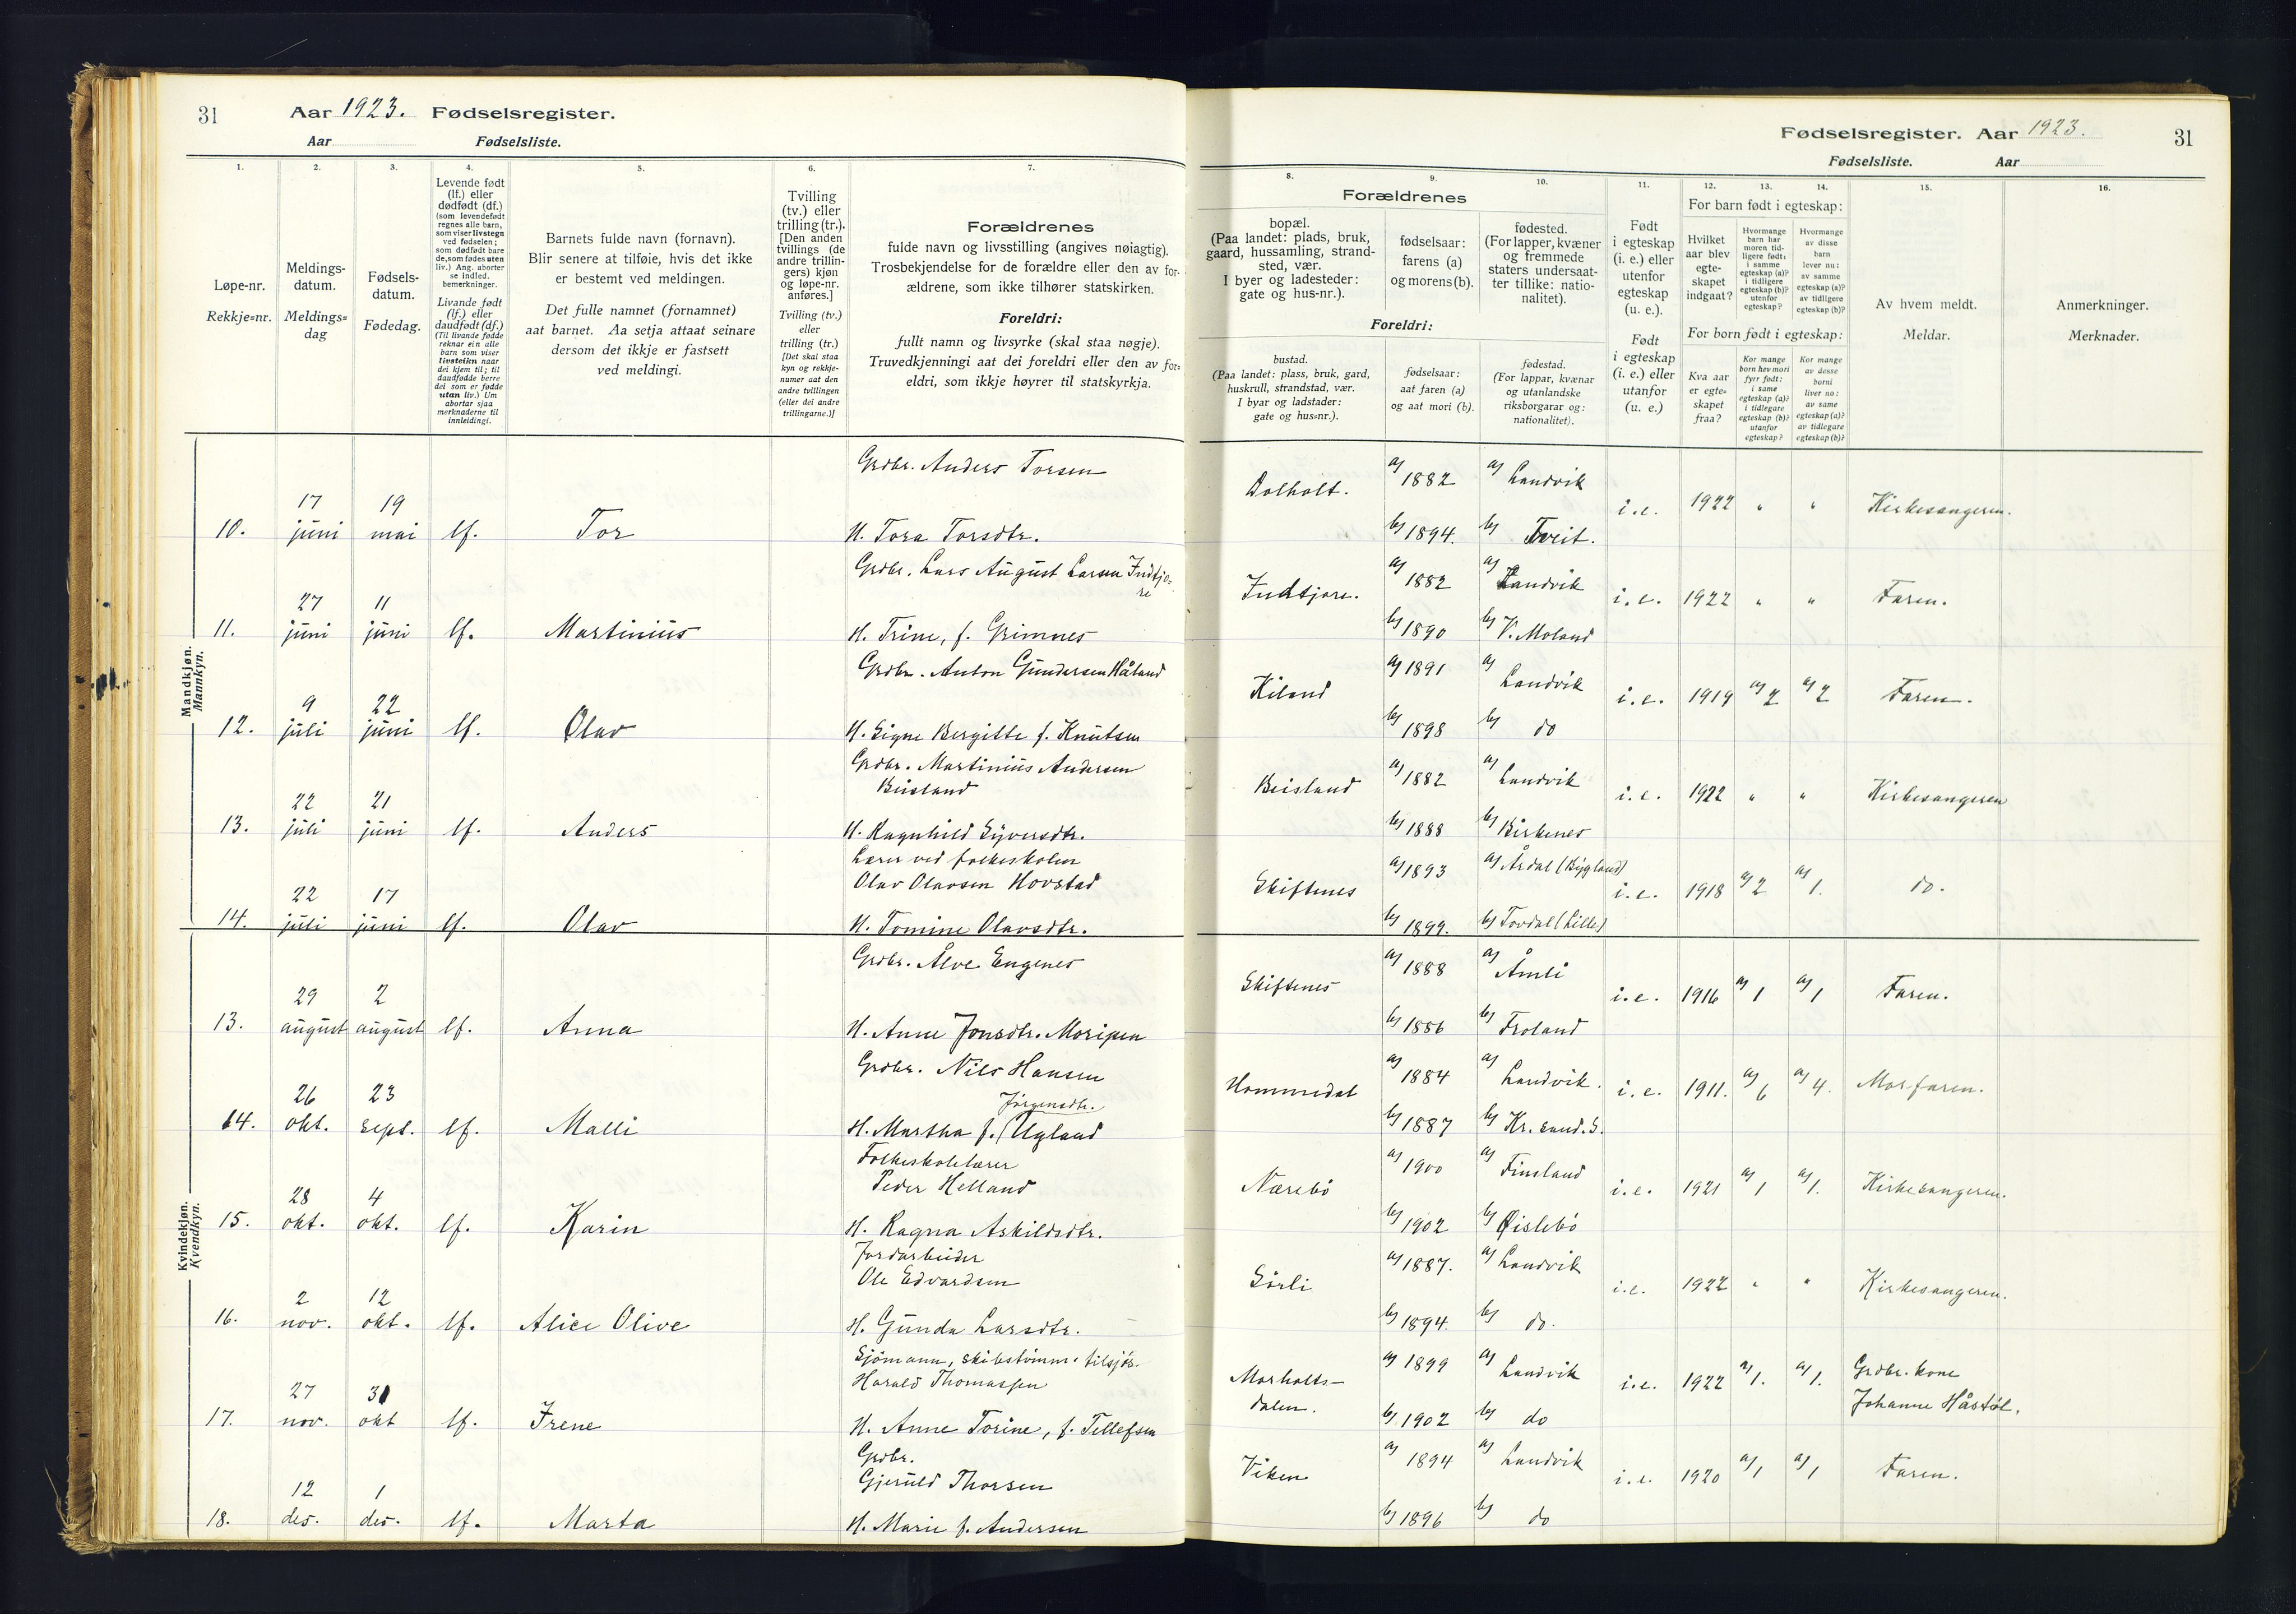 31 Aar 1923. Fødselsregister.
Aar Fødselsliste.
Fødselsregister. Aar 1923. 31
Fødselsliste. Aar
1. 2. 3. 4. 5. 6. 7.
8. 9. 10. 11. 12. 13. 14. 15. 16.
Løpe-nr.
Rekkje=nr.
Meldings-
datum.
Meldings=
dag
Fødsels-
datum.
Fødedag.
Levende født
(lf.) eller
dødfødt (df.)
(som levendefødt
regnes alle barn,
som viser livstegn
ved fødselen;
som dødfødt bare
de, som fødes uten
liv.) Ang. aborter
se indled.
bemerkninger.
Livande født
(lf.) eller
daudfødt (df.)
(Til livande fødde
reknar ein alle
barn som viser
livsteikn naar
dei kjem til; til
daudfødde berre
dei som er fødde
utan liv.) Um
abortar sjaa
merknaderne til
innleidingi.
Barnets fulde navn (fornavn).
Blir senere at tilføie, hvis det ikke
er bestemt ved meldingen.
Det fulle namnet (fornamnet)
aat barnet. Aa setja attaat seinare
dersom det ikkje er fastsett
ved meldingi.
Tvilling
(tv.) eller
trilling (tr.).
[Den anden
tvillings (de
andre trillin-
gers) kjøn
og løpe-nr.
anføres.]
Tvilling (tv.)
eller
trilling (tr.)
[Det skal staa
kyn og rekkje-
numer aat den
andre tvillingen
(eller dei andre
trillingarne.)]
Forældrenes
fulde navn og livsstilling (angives nøiagtig).
Trosbekjendelse for de forældre eller den av for-
ældrene, som ikke tilhører statskirken.
Foreldri:
fullt namn og livsyrke (skal staa nøgje).
Truvedkjenningi aat dei foreldri eller den av for-
eldri, som ikkje høyrer til statskyrkja.
Forældrenes
bopæl.
(Paa landet: plads, bruk,
gaard, hussamling, strand-
sted, vær.
I byer og ladesteder:
gate og hus-nr.).
fødselsaar:
farens (a)
og morens (b).
fødested.
(For lapper, kvæner
og fremmede
staters undersaat-
ter tillike: natio-
nalitet).
Foreldri:
bustad.
(Paa landet: plass, bruk, gard,
huskrull, strandstad, vær.
I byar og ladstader:
gate og hus=nr.).
fødselsaar:
aat faren (a)
og aat mori (b).
fødestad.
(For lappar, kvænar
og utanlandske
riksborgarar og:
nationalitet).
Født
i egteskap
(i. e.) eller
utenfor
egteskap
(u. e.).
Født
i egteskap
(i. e.) eller
utanfor
(u. e.)
For barn født i egteskap:
Hvilket
aar blev
egte-
skapet
indgaat?
Hvormange
barn har
moren tid-
ligere født:
i samme
egteskap (a)?
i tidligere
egteskap (b)?
utenfor
egteskap?
Hvormange
av disse
barn
lever nu:
av samme
egteskap (a)?
av tidligere
egteskap (b)?
For born født i egteskap:
Kva aar
er egte=
skapet
fraa?
Kor mange
born hev mori
fyrr født:
i same
egteskap (a)?
i tidlegare
egteskap (b)?
utanfor
egteskap?
Kor mange
av desse
borni
liver no:
av same
egteskap (a)?
av tidlegare
egteskap (b)?
Av hvem meldt.
Meldar.
Anmerkninger.
Merknader.
Mandkjøn.
Mannkyn.
Grdbr. Anders Torsen
Dolholt. a) 1882 a) Landvik
17 19
10. juni mai lf. Tor H. Tora Torsdtr.
b) 1894. b) Tveit. i.e. 1922 " " Kirkesangeren.
Grdbr. Lars August Larsen Indtjø-
re
Indtjøre. a) 1882 a) Landvik
27 11
11. juni juni lf. Martinius H. Trine, f. Grimnes
b) 1890 b) V. Moland i.e. 1922 " " Faren.
Grdbr. Anton Gundersen Håland
Kiland a) 1891 a) Landvik
9 22
12. juli juni lf. Olav H. Signe Bergitte f. Knutsen
b) 1898 b) do i.e. 1919 a) 2 a) 2 Faren.
Grdbr. Martinius Andersen
Beisland
Beisland a) 1882 a) Landvik
22 21
13. juli juni lf. Anders H. Ragnhild Syversdtr.
b) 1888 b) Birkenes i.e. 1922 " " Kirkesangeren
Lærer ved folkeskolen
Olav Olavsen Hovstad
Skiftenes a) 1893 a) Årdal (Bygland)
22 17
14. juli juni lf. Olav H. Tomine Olavsdtr.
b) 1899. b) Tovdal (Lille) i.e. 1918 a) 2 a) 1. do.
Kvindekjøn.
Kvendkyn.
Grdbr. Ålve Engenes
Skiftenes a) 1888 a) Åmli
29 2
13. august august lf. Anna H. Anne Jonsdtr. Moripen
b) 1886 b) Froland i.e. 1916 a) 1 a) 1 Faren.
Grdbr. Nils Hansen
Hommedal a) 1884 a) Landvik.
26 23 Jørgensdtr.
14. okt. sept. lf. Malli H. Martha f. Ugland
b) 1887 b) Kr.sand.S. i.e. 1911. a) 6 a) 4. Morfaren.
Folkeskolelærer
Peder Helland
Nærebø a) 1900 a) Finsland
28 4
15. okt. okt. lf. Karin H. Ragna Askildsdtr.
b) 1902 b) Øislebø i.e. 1921 a) 1 a) 1. Kirkesangeren.
Jordarbeider
Ole Edvardsen
Sørli a) 1887. a) Landvik
2 12
16. nov. okt. lf. Alice Olive H. Gunda Larsdtr.
b) 1894. b) do. i.e. 1922 " " Kirkesangeren.
Sjømann, skibstømm. tilsjøs.
Harald Thomassen
Morholts-
dalen. a) 1899 a) Landvik
27 31
17. nov. okt lf. Irene H. Anne Torine, f. Tellefsen
b) 1902 b) do i.e. 1922 a) 1. a) 1. Grdbr. kone
Johanne Håstøl.
Grdbr.
Gjeruld Thorsen
Viken a) 1894 a) Landvik
12 1
18. des. des. lf. Marta H. Marie f. Andersen
b) 1896 b) do i.e. 1920 a) 1 a) 1 Faren.